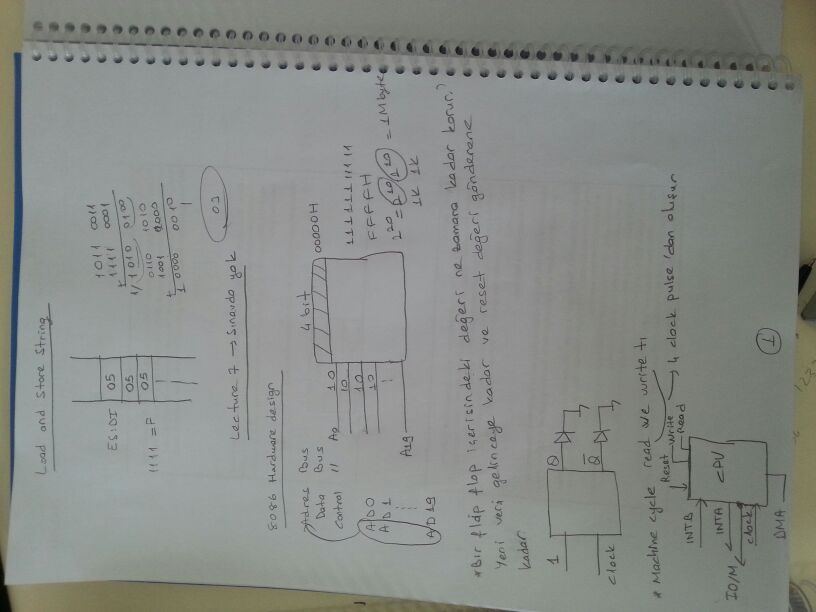 Load and Store String
ES:DI
05
05
05
1111 = F
1011 0011
1111 0001
+
1/1010 0100
0110 1010
1001 0000
+
1 0000 0010
1
03
Lecture 7 → Sınavda yok
8086 Hardware design
Adres Bus
Data Bus
Control "
AD0
AD1
AD19
A0
A19
10
10
10
10
4 bit
00000H
1111111111
FFFFFH
2^20 = 2^10 2^10 = 1Mbyte
1K 1K
*Bir flip flop içerisindeki değeri ne zamana kadar korur?
Yeni veri gelinceye kadar ve reset değeri gönderene
kadar
1
clock
Q
Q
* Machine cycle read ve write tı
→ 4 clock pulse 'dan oluşur
Reset
Write
Read
CPU
INTB
INTA
IO/M
clock
DMA
1